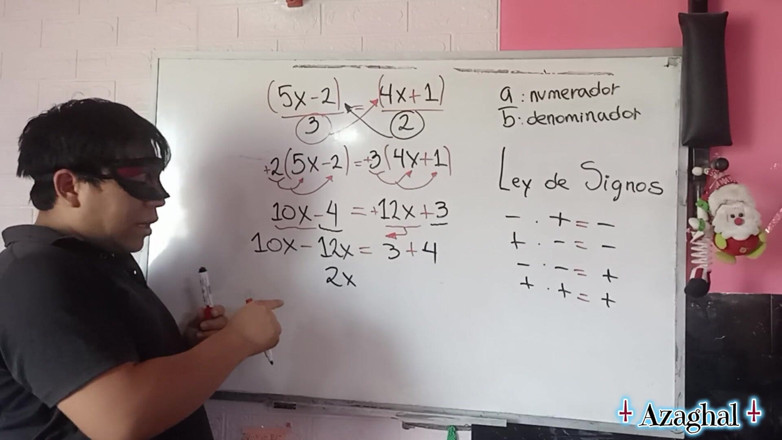 (5x-2) = (4x+1)
3 2
+2(5x-2)=+3(4x+1)
10x-4 = +12x+3
10x-12x = 3+4
2x
a : numerador
b : denominador
Ley de Signos
- · + = -
+ · - = -
- · - = +
+ · + = +
Azaghal